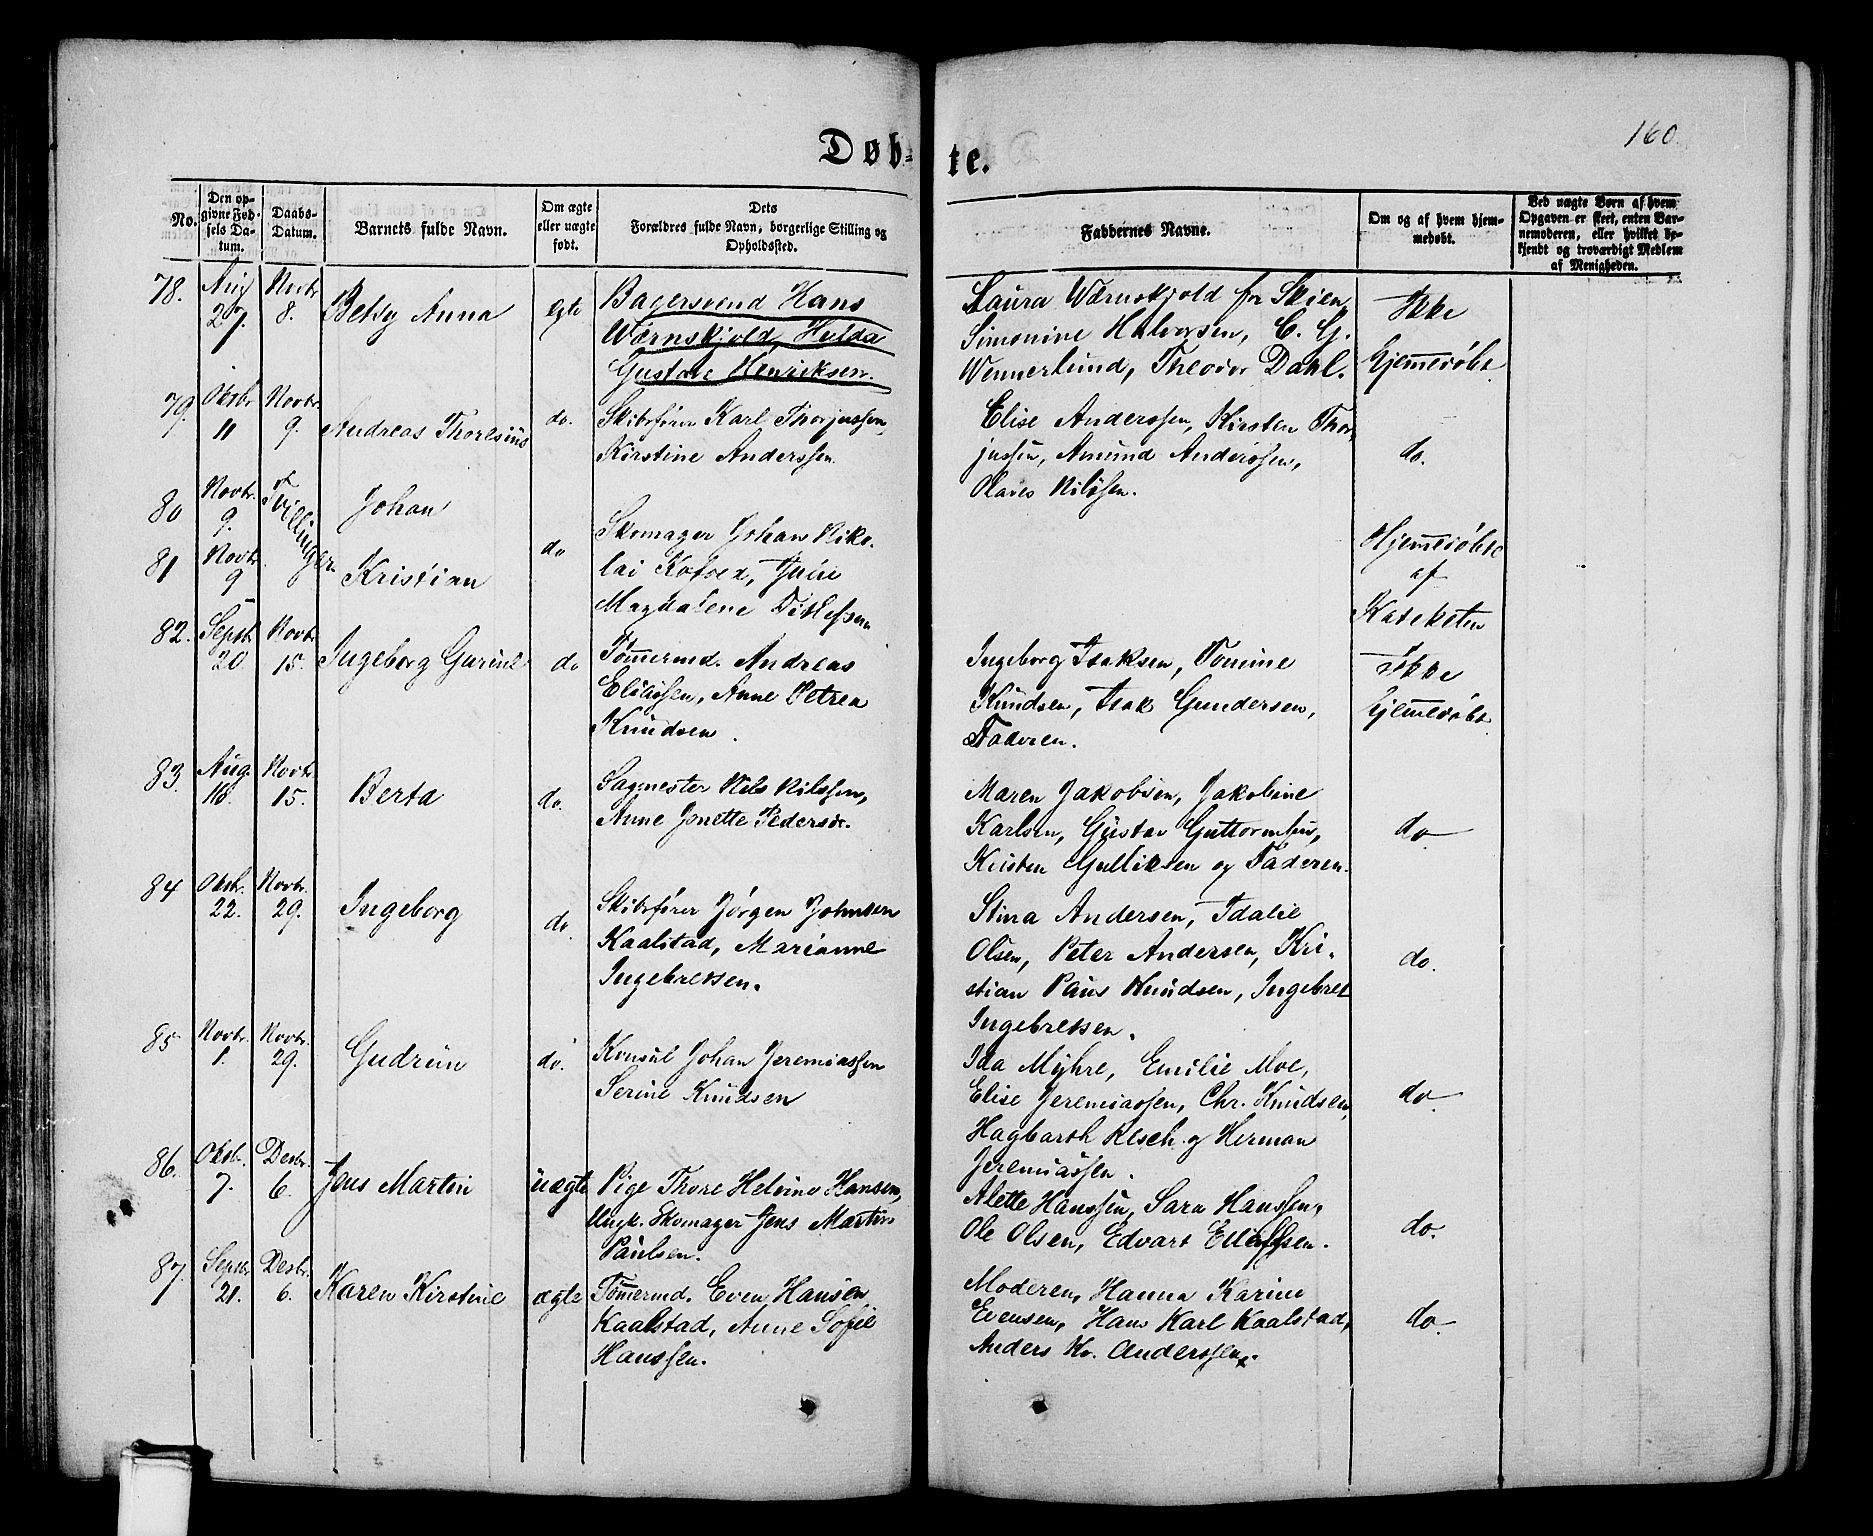 160.
Døb- te.
No.
Den op-
givne Fød-
sels Da-
tum.
Daabs-
Datum.
Barnets fulde Navn.
Om ægte
eller uægte
født.
Dets
Forældres fulde Navn, borgerlige Stilling og
Opholdssted.
Faddernes Navne.
Om og af hvem hjem-
medøbt.
Ved uægte Børn af hvem
Opgaven er skeet, enten Bar-
nemoderen, eller hvilket be-
kjendt og troværdigt Medlem
af Menigheden.
78.
Aug
27.
Novbr
8.
Betsy Anna
egte
Bagersvend Hans
Wærnskjold, Hulda
Gustave Henriksen.
Laura Wærnskjold fr Skien,
Simonine Halvorsen, C. G.
Wennerlund, Theodor Dahl.
Ikke
hjemmedøbt.
79.
Oktbr
11
Novbr.
9.
Andreas Thoresius
do.
Skibsfører Karl Thorjussen,
Kirstine Anderssen.
Elise Anderssen, Kirsten Thor
jussen, Amund Anderssen,
Olaves Nilssen.
do.
80
Novbr.
9.
Tvillinger.
Johan
81
Novbr
9
Kristian
do
Skomager Johan Niko-
lai Kofoed,
Magdalene Ditlefsen
Hjemmedøbte
af
Kateketen
82.
Septbr
20
Novbr
15.
Ingeborg Gurine
do
Tømmermd. Andreas
Eliassen, Anne Petrea
Knudsen.
Ingeborg Isaksen, Tomine
Knudsen, Isak Gundersen,
Faderen.
Ikke
hjemmedøbt.
83.
Aug.
16.
Novbr
15.
Berta
do.
Sagmester Nils Nilssen,
Anne Jonette Pedersdr.
Maren Jakobsen, Jakobine
Karlsen, Gustav Guttormsen,
Kirsten Gulliksen og Faderen.
do
84
Oktbr.
22.
Novbr.
29.
Ingeborg
do.
Skibsfører Jørgen Johnsen
Kaalstad, Marianne
Ingebretsen.
Stina Andersen, Idalie
Olsen, Peter Andersen, Kri-
stian Paus Knudsen, Ingebret
Ingebretsen.
do.
85
Novbr.
1.
Novbr.
29.
Gudrun
do.
Konsul Johan Jeremiassen
Serine Knudsen
Ida Myhre, Emilie Moe,
Elise Jeremiassen, Chr. Knudsen,
Hagbarth Resch og Herman
Jeremiassen.
do.
86.
Oktbr.
7.
Desbr.
6.
Jens Martin
uægte
Pige Thore Helvine Hansen,
Ungk. Skomager Jens Martin
Paulsen.
Alette Hanssen, Sara Hanssen,
Ole Olsen, Edvart Ellefsen.
do.
87.
Septbr
21.
Desbr.
6.
Karen Kirstine
ægte
Tømmermd. Even Hansen
Kaalstad, Anne Sofie
Hanssen.
Moderen, Hanna Karine
Evensen, Hans Karl Kaalstad,
Anders Kr. Anderssen.
do.